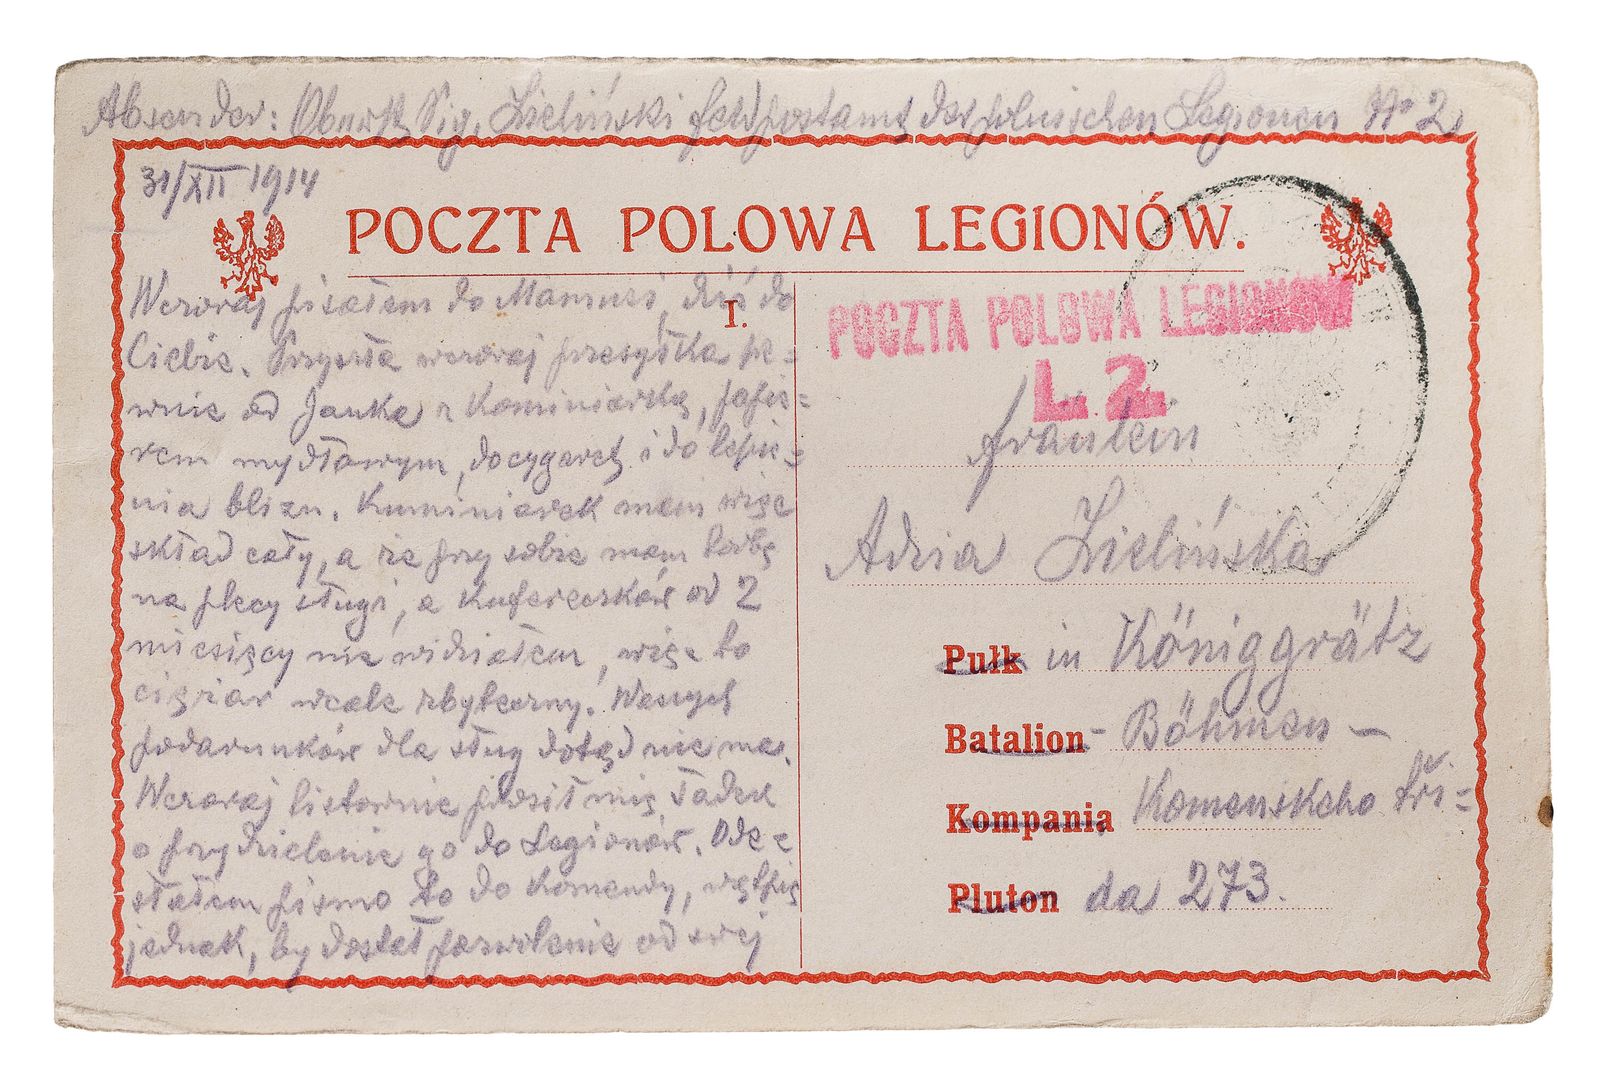 Absender: Oberst Sig. Zieliński Feldpostamt der polnischen Legionen No 2
31/XII 1914
POCZTA POLOWA LEGIONÓW.
I.
Wczoraj pisałem do Mamusi, dziś do
Ciebie. Przyszła wczoraj przesyłka pe=
wnie od Janka z Kominiarką, papie=
rem mydłowym, do cygaret i do lepie=
nia blizn. Kominiarek mam więc
skład cały, a że przy sobie mam torbę
na plecy sługi, a kufereczków od 2
miesięcy nie widziałem, więc to
ciężar wcale zbyteczny. Waszych
podarunków dla sług dotąd nie ma.
Wczoraj listownie prosił mię Tadek
o przydzielenie go do Legionów. Ode=
słałem pismo to do Komendy, wątpię
jednak, by dostał pozwolenie od swej
POCZTA POLOWA LEGIONÓW
L. 2.
Fräulein
Adzia Zielińska
Pułk in Königgrätz
Batalion Böhmen
Kompania Komenskeho tři=
Pluton da 273.